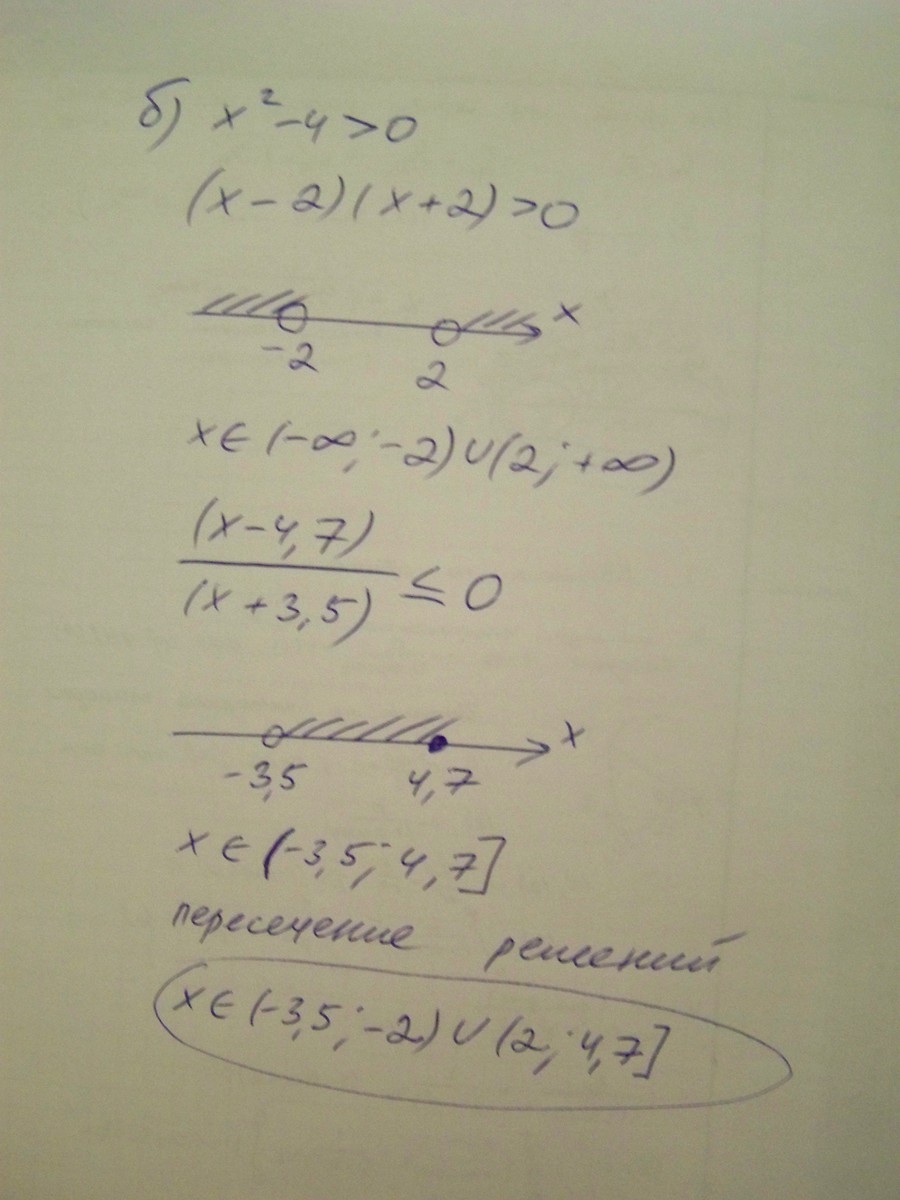 б) x²-4>0
(x-2)(x+2)>0
x
-2 2
x∈(-∞;-2)∪(2;+∞)
(x-4,7)
(x+3,5) ≤ 0
x
-3,5 4,7
x∈(-3,5;4,7]
пересечение решений
x∈(-3,5;-2)∪(2;4,7]